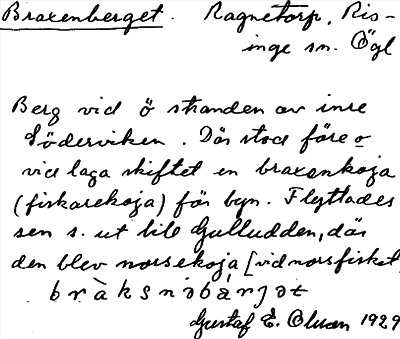 Braxenberget. Ragnetorp, Ris-
inge sn. Ögl
Berg vid ö stranden av inre
Söderviken. Där stod före o
vid laga skiftet en braxenkoja
(fiskarekoja) för byn. Flyttades
sen s. ut till Gulludden, där
den blev norsekoja [vid norsfisket
bràksnəbärjət
Gustaf E. Olsson 1929